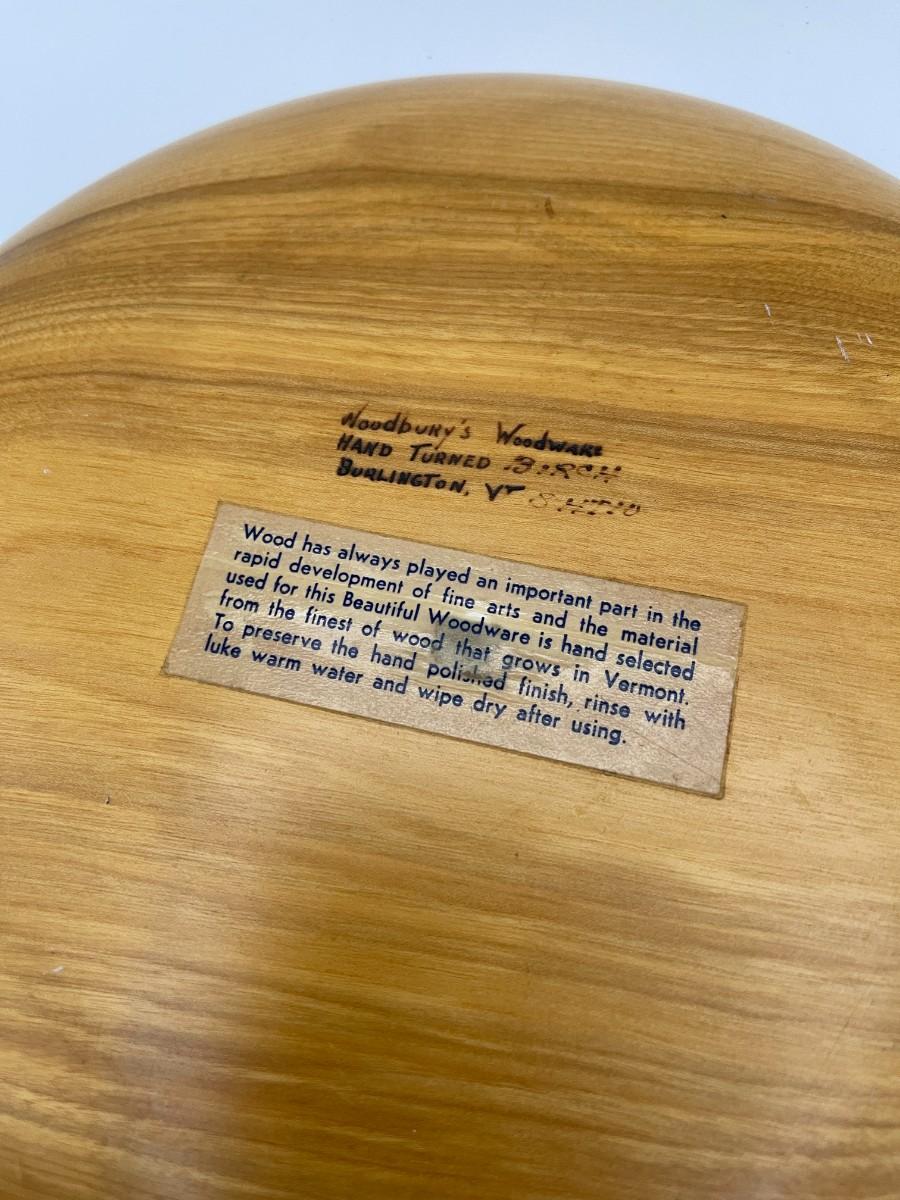 Woodbury's Woodware
HAND TURNED BIRCH
BURLINGTON, VT
Wood has always played an important part in the
rapid development of fine arts and the material
used for this Beautiful Woodware is hand selected
from the finest of wood that grows in Vermont.
To preserve the hand polished finish, rinse with
luke warm water and wipe dry after using.